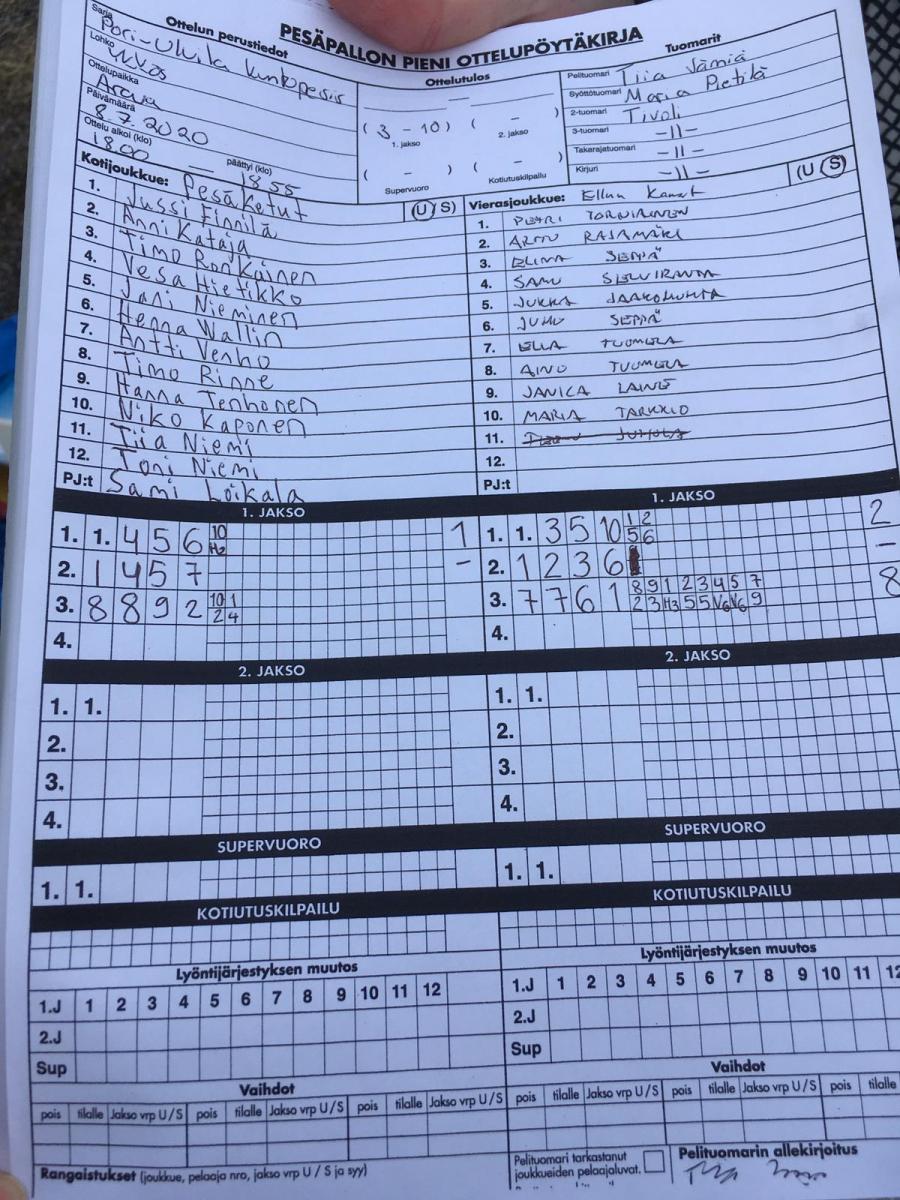 PESÄPALLON PIENI OTTELUPÖYTÄKIRJA
Ottelun perustiedot
Sarja Pori-Ulvila kuntopesis
Lohko YKKÖS
Ottelupaikka
Päivämäärä 8.7.2020
Ottelu alkoi (klo) 18.00 päättyi (klo) 18.55
Ottelutulos
( 3 - 10 ) ( - )
1. jakso 2. jakso
( - ) ( - )
Supervuoro Kotiutuskilpailu
Tuomarit
Pelituomari Tiia
Syöttötuomari Maria Pietilä
2-tuomari Tivoli
3-tuomari -II-
Takarajatuomari -II-
Kirjuri -II-
Kotijoukkue: Pesäketut (U S)
1. Jussi Finnilä
2. Anni Kataja
3. Timo Ronkainen
4. Vesa Hietikko
5. Jani Nieminen
6. Henna Wallin
7. Antti Venho
8. Timo Rinne
9. Hanna Tenhonen
10. Niko Kaponen
11. Tiia Niemi
12. Toni Niemi
PJ:t Sami Loikala
Vierasjoukkue: Ellun Kanat (U S)
1. PETRI TORNIAINEN
2. ARTO RAJAMÄKI
3. ELINA SEPPÄ
4. SAMU
5. JUKKA JAAKOHUHTA
6. JUHO SEPPÄ
7. ELLA TUOMELA
8. AINO TUOMELA
9. JANICA LAINE
10. MARIA TARKKIO
11.
12.
PJ:t
1. JAKSO
1. 1. 4 5 6 10 H2 1
2. 1 4 5 7 -
3. 8 8 9 2 10 1 2 4
4.
1. JAKSO
1. 1. 3 5 10 1 2 5 6 2
2. 1 2 3 6 -
3. 7 7 6 1 8 9 1 2 3 4 5 7 2 3 H3 5 5 V6 V6 9 8
4.
2. JAKSO
1. 1.
2.
3.
4.
2. JAKSO
1. 1.
2.
3.
4.
SUPERVUORO
1. 1.
SUPERVUORO
1. 1.
KOTIUTUSKILPAILU
KOTIUTUSKILPAILU
Lyöntijärjestyksen muutos
1.J 1 2 3 4 5 6 7 8 9 10 11 12
2.J
Sup
Lyöntijärjestyksen muutos
1.J 1 2 3 4 5 6 7 8 9 10 11 12
2.J
Sup
Vaihdot
pois tilalle Jakso vrp U / S pois tilalle Jakso vrp U / S pois tilalle Jakso vrp U / S
Vaihdot
pois tilalle Jakso vrp U / S pois tilalle Jakso vrp U / S pois tilalle
Rangaistukset (joukkue, pelaaja nro, jakso vrp U / S ja syy)
Pelituomari tarkastanut
joukkueiden pelaajaluvat.
Pelituomarin allekirjoitus